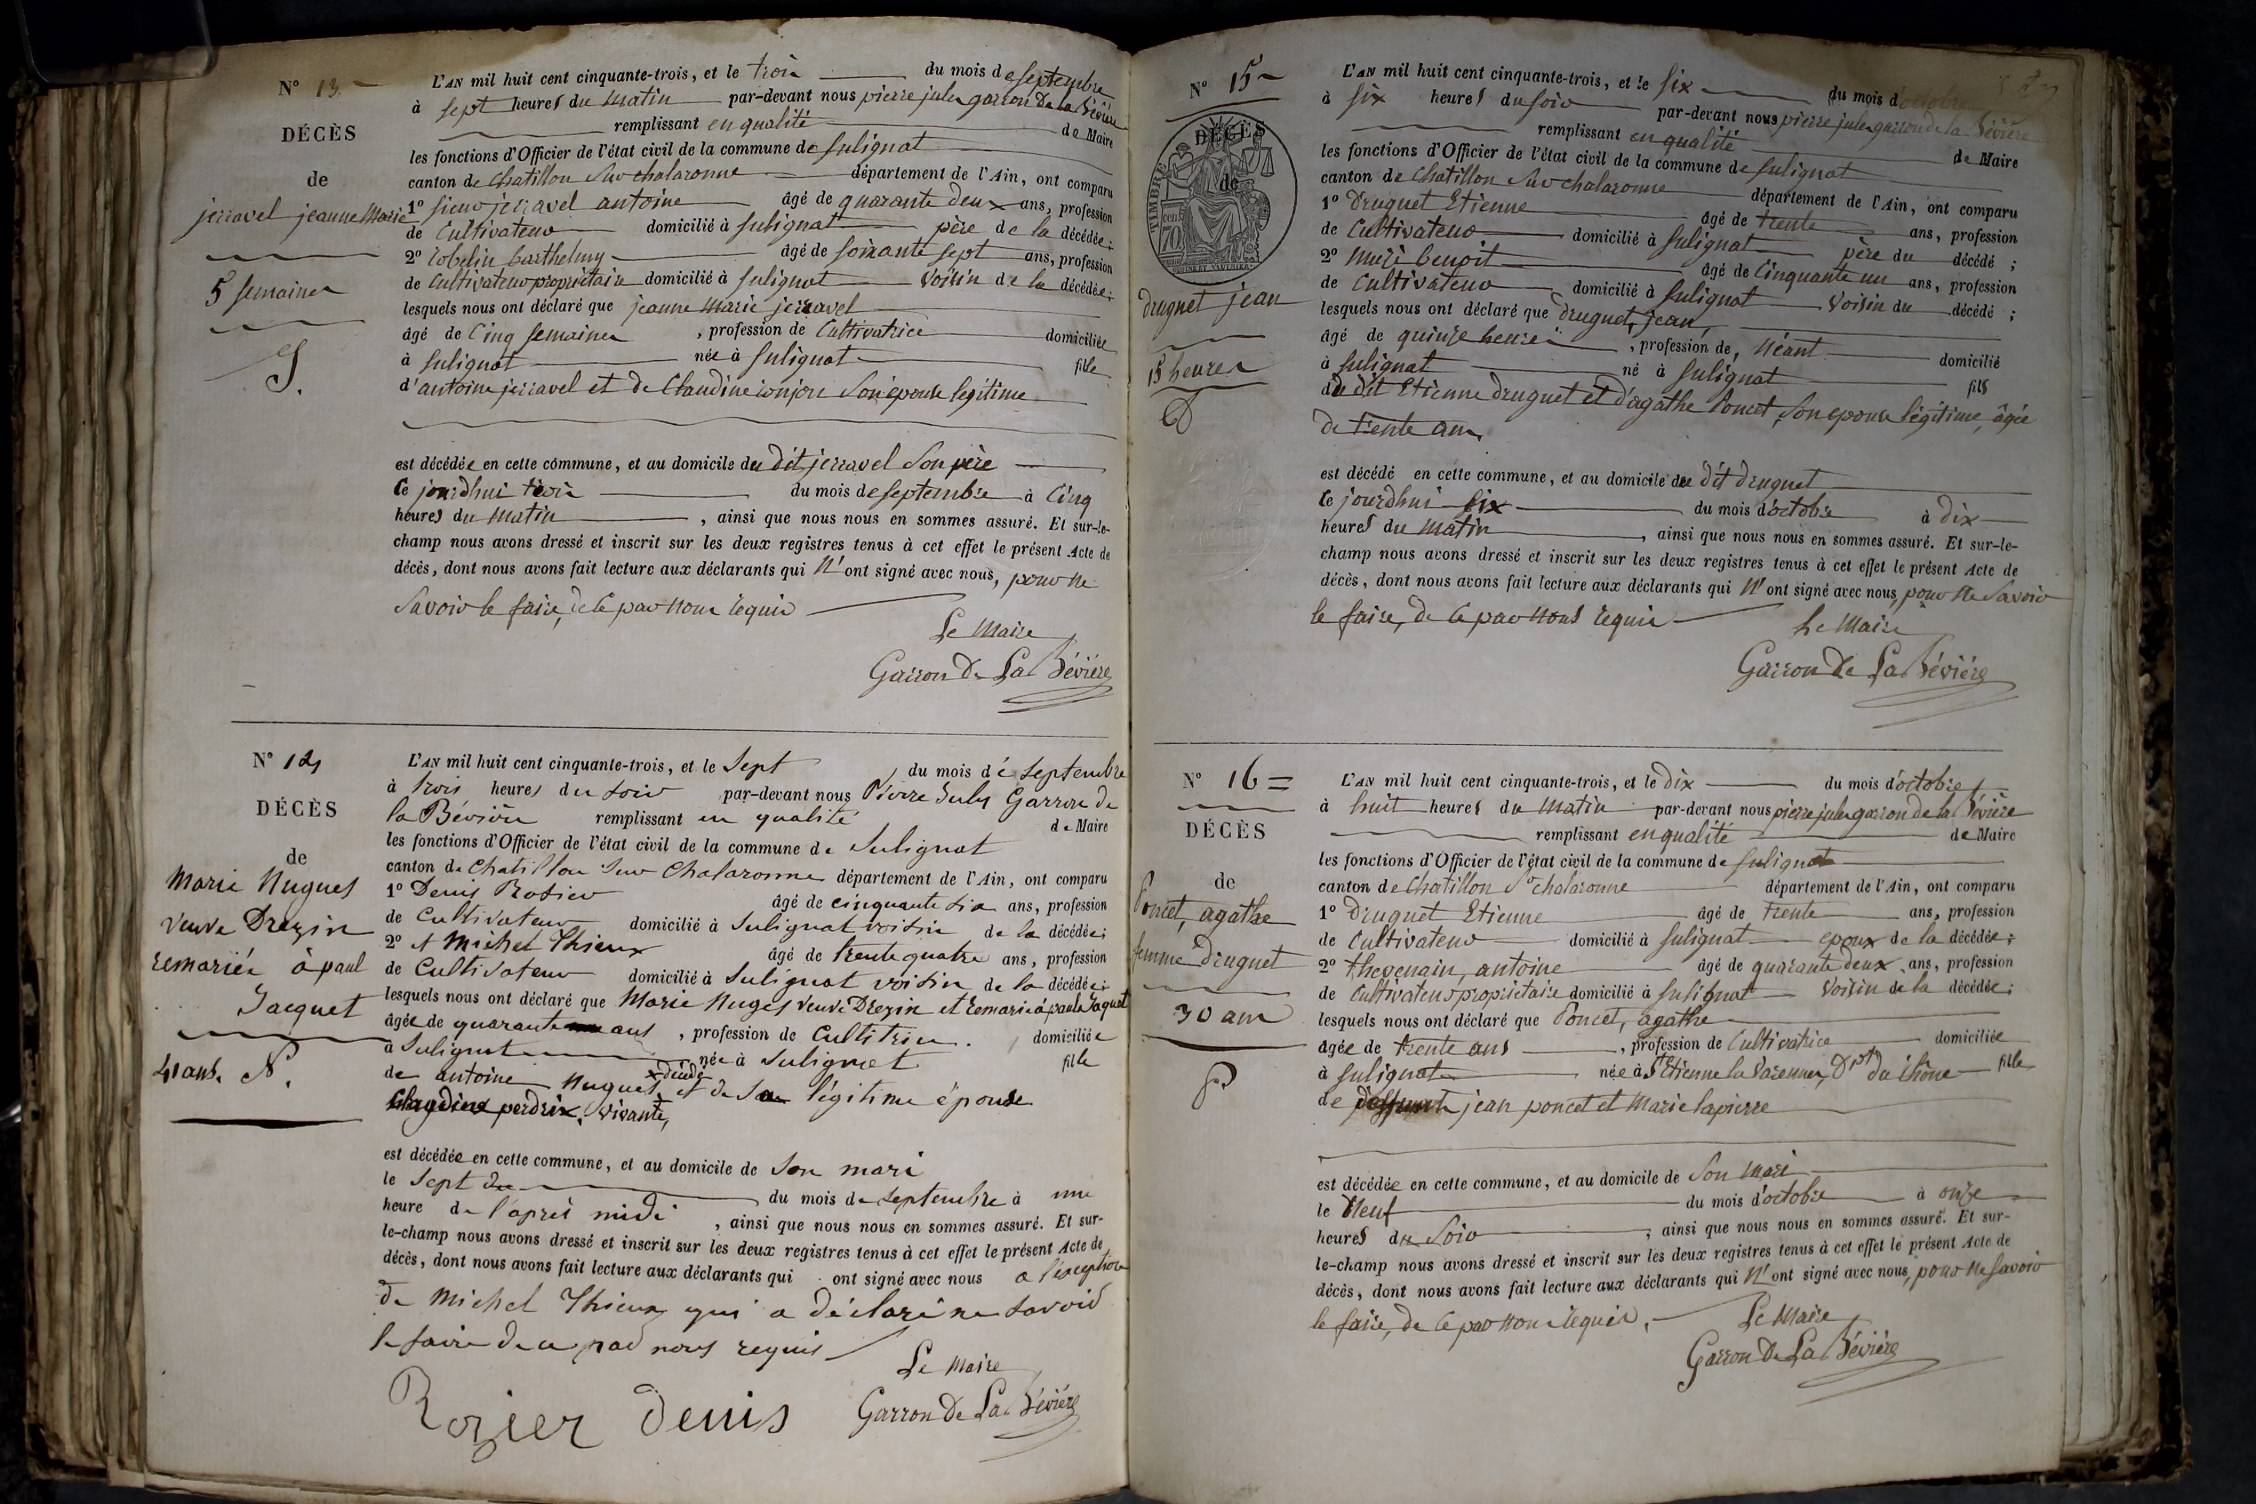 N° 13
DÉCÈS
de
jerravel jeanne Marie
5 semaines
J.
L'AN mil huit cent cinquante-trois, et le trois du mois de septembre
à sept heures du matin par-devant nous pierre jules garron De la Bévière
remplissant en qualité de Maire
les fonctions d'Officier de l'état civil de la commune de Sulignat
canton de Chatillon Sur chalaronne département de l'Ain, ont comparu
1° sieur jerravel antoine âgé de quarante deux ans, profession
de Cultivateur domicilié à Sulignat père de la décédée;
2° Cobelin barthelmy âgé de soixante sept ans, profession
de Cultivateur propriétaire domicilié à Sulignat Voisin de la décédée;
lesquels nous ont déclaré que jeanne Marie jerravel
âgé de Cinq semaines, profession de Cultivatrice domiciliée
à Sulignat née à Sulignat fille
d'antoine jerravel et de Claudine conjon Son épouse légitime
est décédée en cette commune, et au domicile du dit jerravel Son père
Ce jourdhui trois du mois de septembre à Cinq
heures du Matin, ainsi que nous nous en sommes assuré. Et sur-le-
champ nous avons dressé et inscrit sur les deux registres tenus à cet effet le présent Acte de
décès, dont nous avons fait lecture aux déclarants qui N'ont signé avec nous, pour ne
Savoir le faire, de ce par nous requis
Le Maire
Garron De La Bévière
N° 14
DÉCÈS
de
Marie Nugues
veuve Drezin
remariée à paul
Jacquet
41 ans. N.
L'AN mil huit cent cinquante-trois, et le Sept du mois de Septembre
à trois heures du soir par-devant nous Pierre Jules Garron de
la Bévière remplissant en qualité de Maire
les fonctions d'Officier de l'état civil de la commune de Sulignat
canton de Chatillon Sur Chalaronne département de l'Ain, ont comparu
1° Denis Rosier âgé de cinquante six ans, profession
de Cultivateur domicilié à Sulignat voisin de la décédée;
2° et Michel Thieux âgé de trente quatre ans, profession
de Cultivateur domicilié à Sulignat voisin de la décédée;
lesquels nous ont déclaré que Marie Nuges veuve Drezin et remarié à paul Jaquet
âgée de quarante ans, profession de Cultitrice. domiciliée
à Sulignat née à Sulignat fille
de antoine Nugues et de Sa légitime épouse
Claudine perdrix. vivante,
est décédée en cette commune, et au domicile de Son mari
le Sept du mois de Septembre à une
heure de l'après midi, ainsi que nous nous en sommes assuré. Et sur-
le-champ nous avons dressé et inscrit sur les deux registres tenus à cet effet le présent Acte de
décès, dont nous avons fait lecture aux déclarants qui ont signé avec nous a l'exception
de Michel Thieux qui a déclaré ne savoir
le faire de ce par nous requis
Le Maire
Rozier denis Garron De La Bévière
N° 15
DÉCÈS
de
TIMBRE
70
druguet jean
15 heures
D
L'AN mil huit cent cinquante-trois, et le six du mois d'octobre
à six heures du soir par-devant nous pierre jules garron de la Bévière
remplissant en qualité de Maire
les fonctions d'Officier de l'état civil de la commune de Sulignat
canton de Chatillon Sur chalaronne département de l'Ain, ont comparu
1° Druguet Etienne âgé de trente ans, profession
de Cultivateur domicilié à Sulignat père du décédé;
2° Muri benoit âgé de Cinquante un ans, profession
de Cultivateur domicilié à Sulignat Voisin du décédé;
lesquels nous ont déclaré que druguet, jean,
âgé de quinze heures, profession de, Néant domicilié
à Sulignat né à Sulignat fils
du dit Etienne druguet et d'agathe Poncet, Son epouse légitime, âgée
de trente ans,
est décédé en cette commune, et au domicile du dit druguet
Ce jourdhui six du mois d'octobre à dix
heures du matin, ainsi que nous nous en sommes assuré. Et sur-le-
champ nous avons dressé et inscrit sur les deux registres tenus à cet effet le présent Acte de
décès, dont nous avons fait lecture aux déclarants qui N'ont signé avec nous, pour ne Savoir
le faire, de ce par nous requis
Le Maire
Garron De La Bévière
N° 16
DÉCÈS
de
Poncet, agathe
femme Druguet
30 ans
P
L'AN mil huit cent cinquante-trois, et le dix du mois d'octobre
à huit heures du Matin par-devant nous pierre jules garron de la Bévière
remplissant en qualité de Maire
les fonctions d'Officier de l'état civil de la commune de Sulignat
canton de Chatillon Sr chalaronne département de l'Ain, ont comparu
1° Druguet Etienne âgé de trente ans, profession
de Cultivateur domicilié à Sulignat epoux de la décédée;
2° thevenain, antoine âgé de quarante deux ans, profession
de Cultivateur propriétaire domicilié à Sulignat Voisin de la décédée;
lesquels nous ont déclaré que Poncet, agathe
âgée de trente ans, profession de Cultivatrice domiciliée
à Sulignat née à St Etienne la Varenne, Dpt du rhône fille
de jean poncet et Marie lapierre
est décédée en cette commune, et au domicile de Son Mari
le Neuf du mois d'octobre à onze
heures du Soir, ainsi que nous nous en sommes assuré. Et sur-
le-champ nous avons dressé et inscrit sur les deux registres tenus à cet effet le présent Acte de
décès, dont nous avons fait lecture aux déclarants qui N'ont signé avec nous, pour ne Savoir
le faire, de ce par nous requis.
Le Maire
Garron De La Bévière